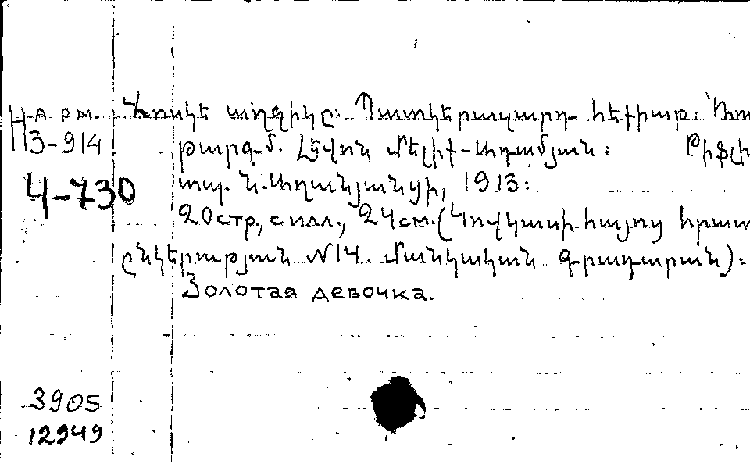 На рм. Ոսկէ աղջիկը։ Պատկերազարդ հեքիաթ։ Ռու
ПЗ-914 թարգմ. Լեվոն Մելիք-Ադամյան։ Թիֆլի
Կ-730 տպ. Ն. Աղանյանցի, 1913։
20стр, с илл., 24см. (Կովկասի հայոց հրատ
ընկերության №14. Մանկական գրադարան)։
Золотая девочка.
3905
12949